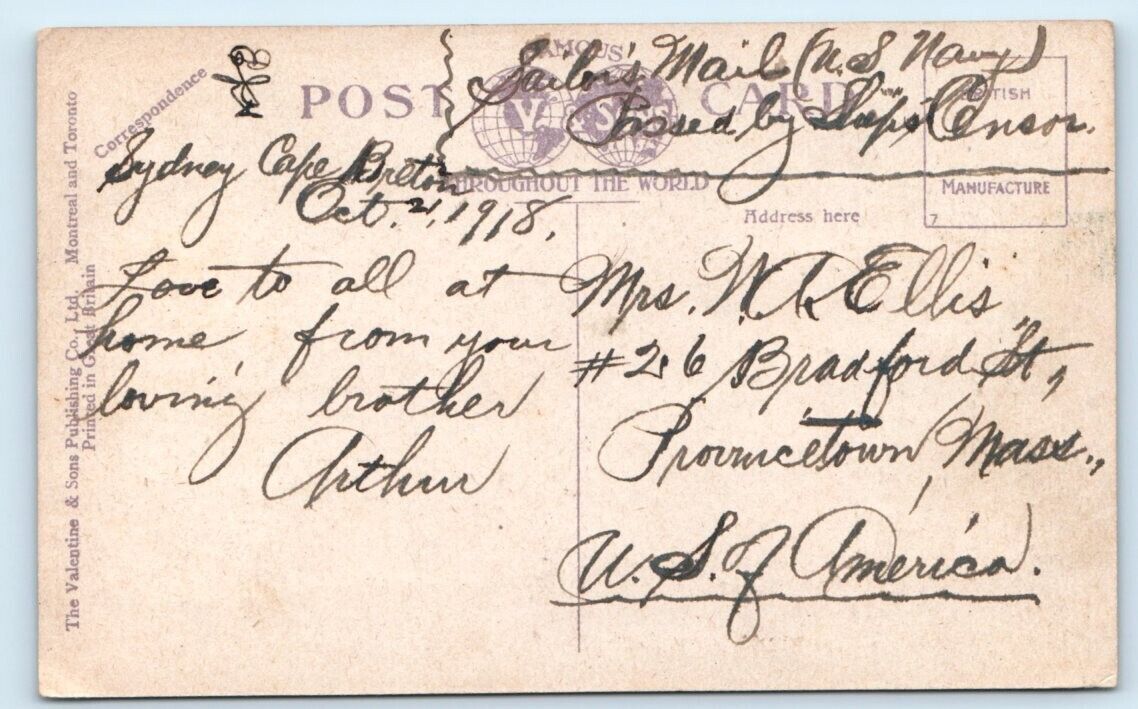 The Valentine & Sons Publishing Co., Ltd. Montreal and Toronto
Printed in Great Britain
Correspondence
FAMOUS
POST CARD
V S
THROUGHOUT THE WORLD
BRITISH
MANUFACTURE
7
Address here
Sailor's Mail (U.S Navy)
Passed by Ships Censor.
Sydney Cape Breton
Oct. 21, 1918.
Love to all at
home, from your
loving brother
Arthur
Mrs. W. R. Ellis
#26 Bradford St,
Provincetown, Mass.,
U. S. of America.